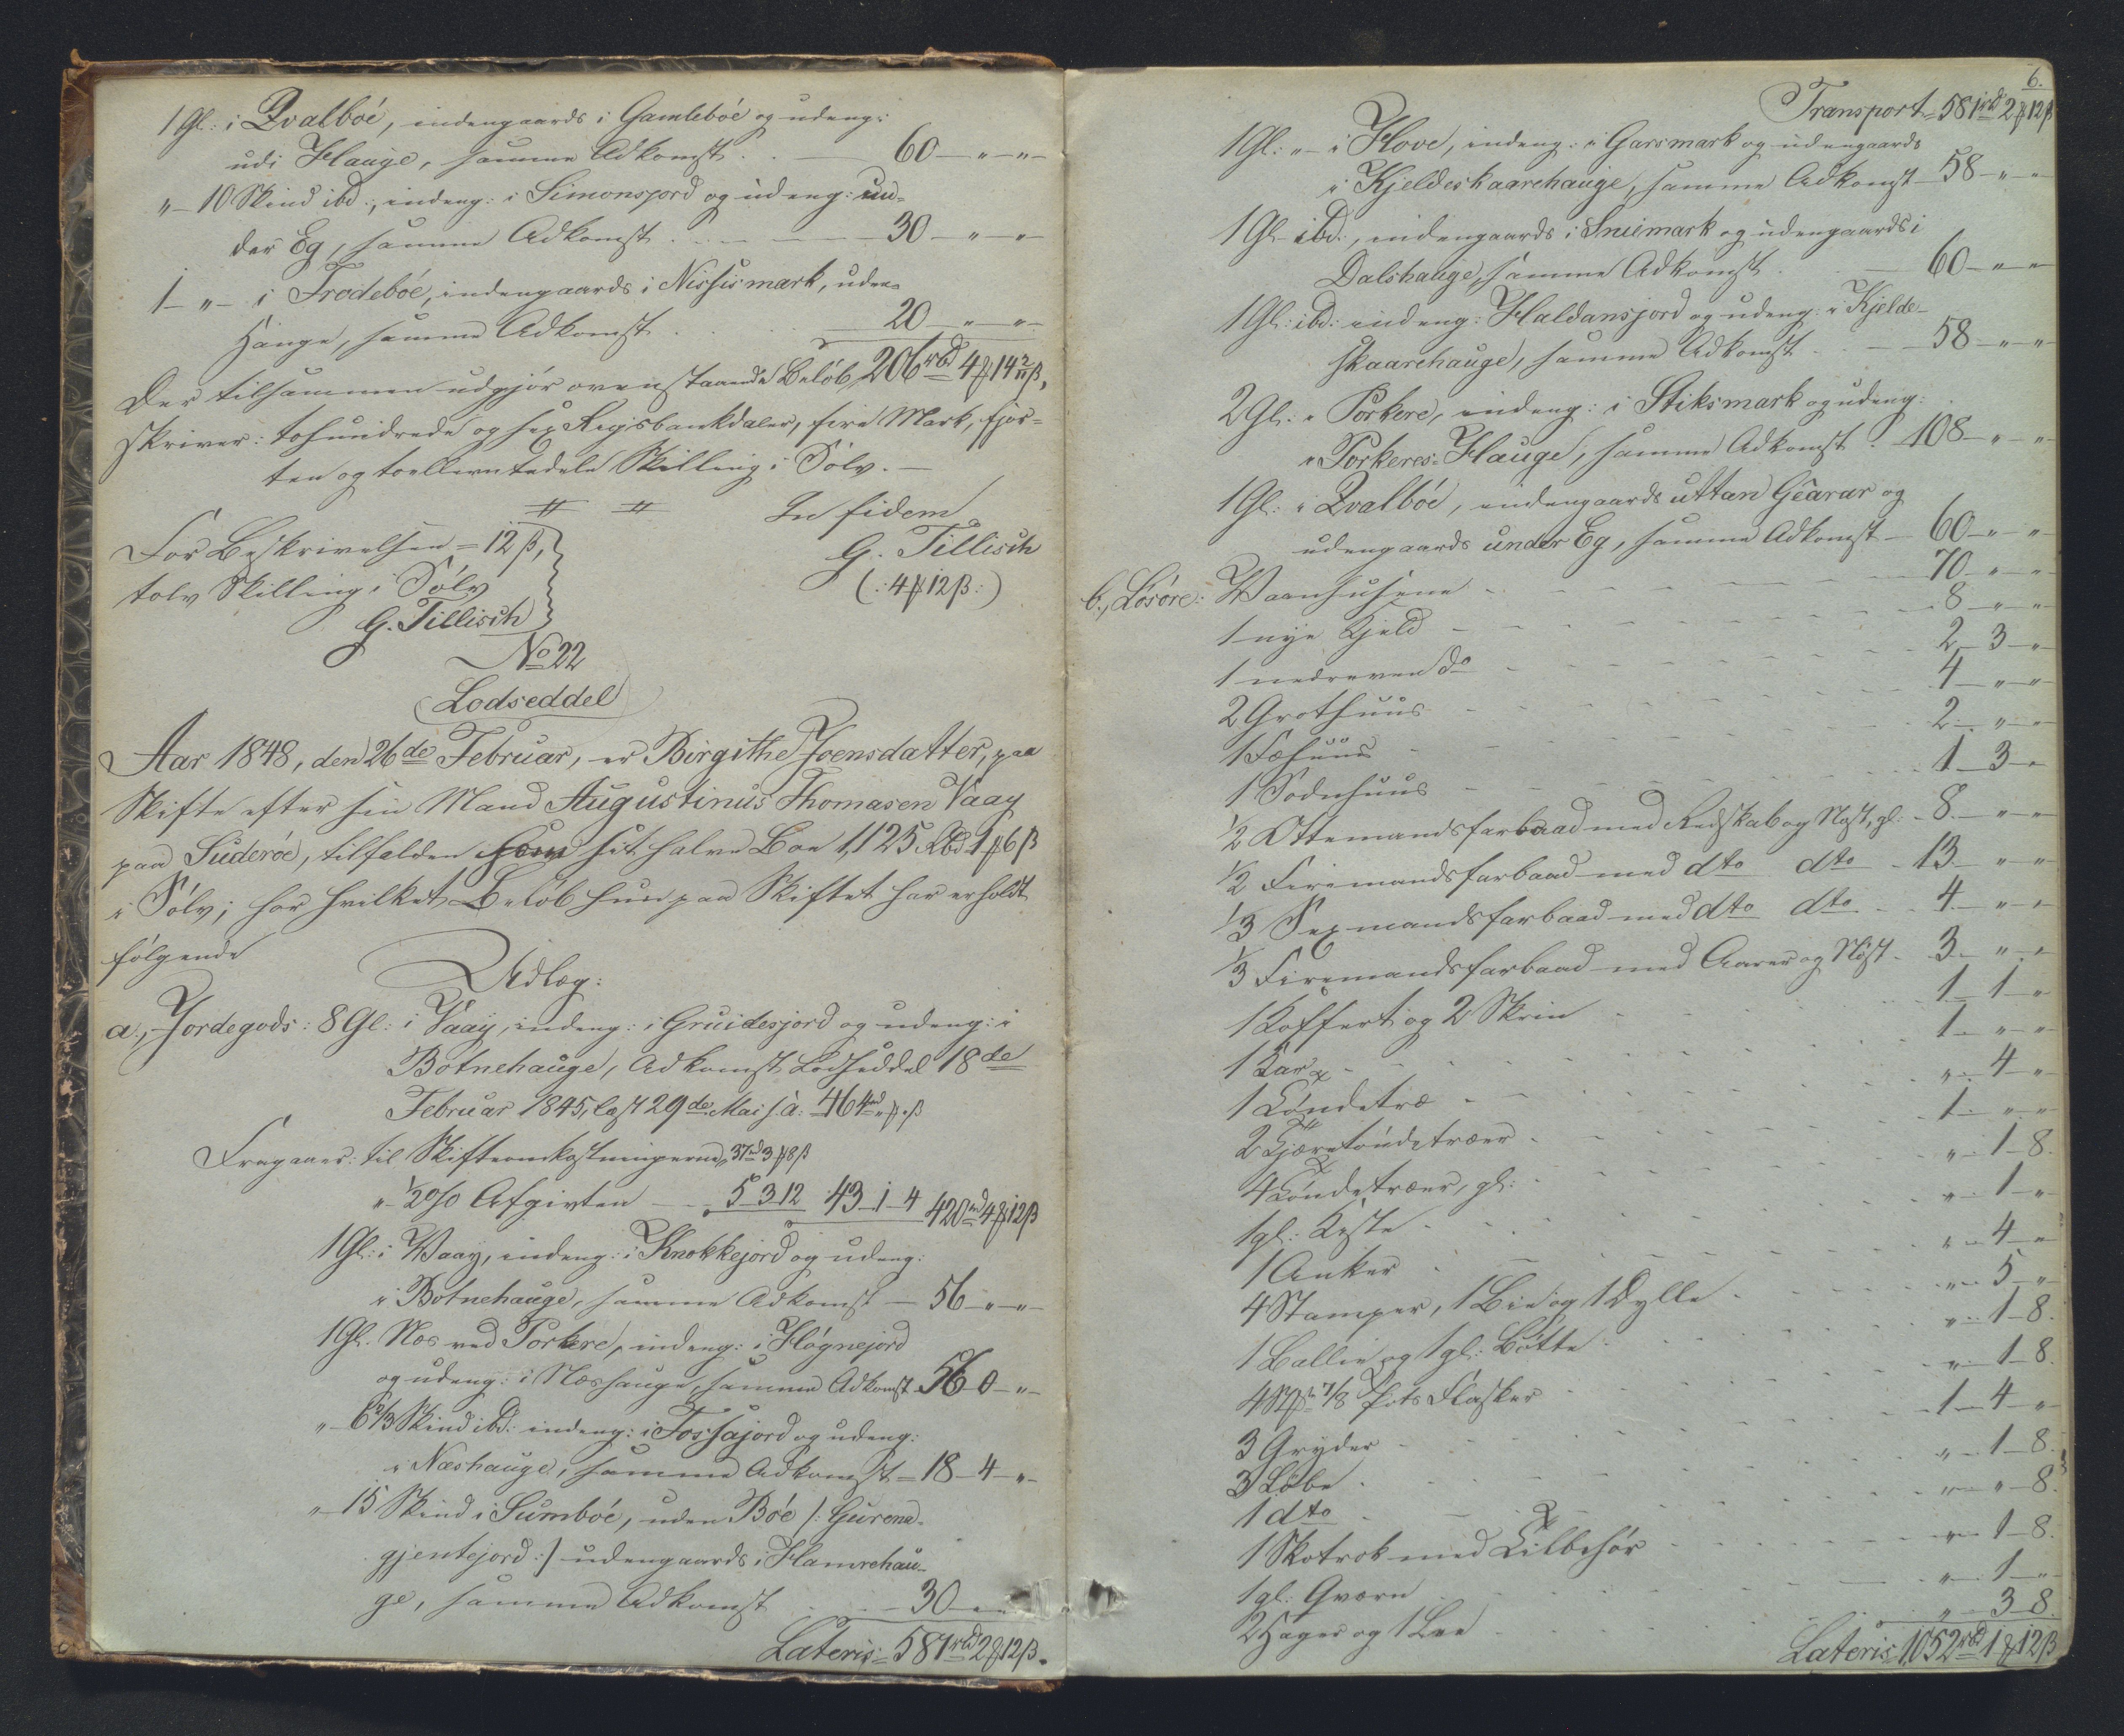 1 Gl: i Qvalböe, indengaards i Gamleböe og udeng:
udi Hauge, samme Adkomst . . — 60 — " — " —
" — 10 Skind ibd:, indeng: i Simonsjord og udeng: un-
der Eg, samme Adkomst . — — — 30 — " — " —
1 — " — i Frodeböe, indengaards i Nissismark, uden
Hauge, samme Adkomst . . . 20 — " — " —
Der tilsammen udgjör ovenstaaende Belöb, 206 rbd 4 ₰ 14 2/11 β,
skriver: tohundrede og sex Rigsbankdaler, fire Mark, fjor-
ten og toellevtedele Skilling i Sölv. —
In fidem
G. Tillisch
(: 4 ₰ 12 β :)
For Beskrivelsen = 12 β,
tolv Skilling i Sölv
G. Tillisch
No 22
Lodseddel
Aar 1848, den 26de Februar, er Birgithe Joensdatter, paa
Skifte efter sin Mand Augustinus Thomasen Vaag
paa Suderöe, tilfalden som sit halve Boe 1,125 Rbd 1 ₰ 6 β
i Sölv; for hvilket Belöb hun paa Skiftet har erholdt
fölgende
Udlæg:
a., Jordegods: 8 Gl: i Vaag, indeng: i Gruidesjord og udeng: i
Botnehauge, Adkomst Lodseddel 18de
Februar 1845, læst 29de Mai s. A: 464 rd " ₰ " β
Fragaaer: til Skifteomkostningerne, 37 rd 3 ₰ 8 β
" 1/2 0/0 Afgivten — — 5 3 12 43 — 1 — 4 420 rd 4 ₰ 12 β
1 Gl: i Waag, indeng: i Knokkejord og udeng:
i Botnehauge, samme Adkomst — 56 — " — " —
1 Gl. Næs ved Porkere, indeng: i Högnejord
og udeng: i Næshauge, samme Adkomst 56 — 0 — " —
" — 6 2/3 Skind ibd: indeng: i Fossajord og udeng:
i Næshauge, samme Adkomst = 18 — 4 — " —
" — 15 Skind i Sumböe, uden Böe /: Gurena-
gjentejord :/ udengaards i Hamrehau-
ge, samme Adkomst . . . — 30 — " —
Lateris: 581 rbd 2 ₰ 12 β.
6.
Transport = 581 rbd 2 ₰ 12 β
1 Gl: " — i Hove, indeng: i Garsmark og udengaards
i Kjeldeskaarehauge, samme Adkomst — 58 — " — "
1 Gl — ibd:, indengaards i Sniemark og udengaards i
Dalshauge, samme Adkomst . . — 60 — " — "
1 Gl: ibd: indeng: Haldansjord og udeng: i Kjelde-
skaarehauge, samme Adkomst . . — 58 — " — "
2 Gl: i Porkere, indeng: i Stiksmark og udeng:
i Porkeres-Hauge, samme Adkomst . 108 — " — "
1 Gl: i Qvalböe, indengaards uttan Gearar og
udengaards under Eg, samme Adkomst — 60 — " — "
b., Lösöre: Vaanhusene . . . 70 — " — "
1 nye Kjeld — . . . 8 — " — "
1 nedreven do . . . 2 — 3 — "
2 Grothuus . . . 4 — " — "
1 Fæhuus . . . 2 — " — "
1 Sodnhuus . . . 1 — 3 — "
1/2 Ottemandsfarbaad med Redskab og Nöst, gl: — 8 — " — "
1/2 Firemandsfarbaad med dto dto — 13 — " — "
1/3 Sexmandsfarbaad med dto dto — 4 — " — "
1/3 Firemandsfarbaad med Aarer og Nöst — 3 — " — "
1 Koffert og 2 Skrin . . . 1 — 1 — "
1 Kar . . . 1 — " — "
1 Töndetræ . . . " — 4 — "
2 Kjæretöndetræer . . . 1 — " — "
4 Töndetræer, gl: . . . " — 1 — 8.
1 gl: Kiste . . . " — 1 — "
1 Anker . . . " — 4 — "
4 Stamper, 1 Bie og 1 Dylle . . . " — 5 — "
1 Ballie og 1 gl: Bötte . . . " — 1 — 8.
7/8 Pots Flasker . . . " — 1 — 8.
3 Gryder . . . 1 — 4 — "
3 Löbe . . . " — 1 — 8.
1 dto . . . " — " — 8.
1 Skotrok med Tilbehör . . . " — 1 — 8.
1 gl: Qværn . . . " — 1 — "
2 Hager og 1 Lee . . . " — 3 — 8.
Lateris 1,052 rbd 1 ₰ 12 β